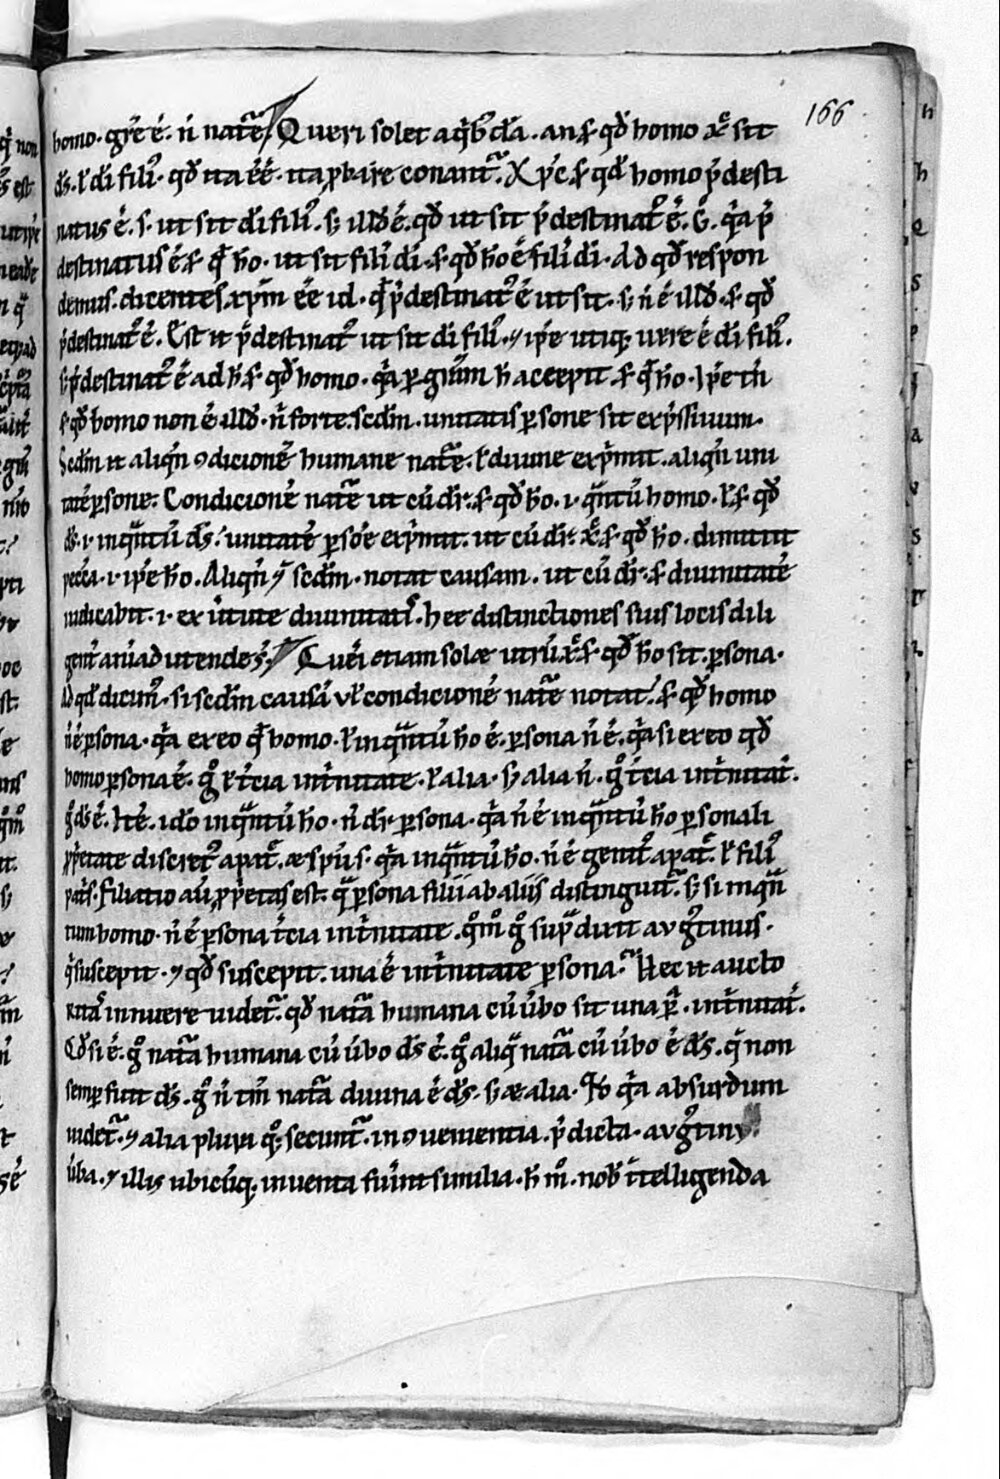 166
homo. gr̄e ē. n̄ nat̄e. Queri solet a q̇b' d̄a. an ẜ qđ homo xp̄c sit
d̄s. ł di fili'. qđ ita ēē. ita p̱bare conant̄. Xp̄c ẜ qđ homo p̄desti
natus ē. s. ut sit di fili'. s; illđ ē. qđ ut sit p̄destinat' ē. ḡ. q̇a p̄
destinatus ē ẜ qđ ho. ut sit fili' di. ẜ qđ ho ē fili' di. Ad qđ respon
demus. dicentes xp̄m ēē id. qđ p̄destinat' ē ut sit. s; n̄ ē illđ. ẜ qđ
p̄destinat' ē. Est n̄ p̄destinat' ut sit di fili'. ⁊ ip̄e utiq; uere ē di fili'.
s; p̄destinat' ē ad h̄ ẜ qđ homo. q̇a p̱ gr̄am h̄ accepit ẜ qđ ho. ip̄e tn̄
ẜ qđ homo non ē illđ. n̄ forte. scđm. unitatis p̱sone sit exp̄ssiuum.
Scđm n̄ aliqn̄ ꝯdicionē humane nat̄e. ł diuine exp̄mit. aliqn̄ uni
tatē p̱sone. Condicionē nat̄e ut cū dr̄. ẜ qđ ho. i. q̄ntū homo. ł ẜ qđ
d̄s. i. inq̄ntū d̄s. unitatē p̱soe exp̄mit. ut cū dr̄. xp̄c ẜ qđ ho. dimittit
pecc̄a. i. ip̄e ho. Aliqn̄ ⁊ scđm. notat causam. ut cū dr̄. ẜ diuinitatē
iudicabit. i. ex ūtute diuinitatis. hee distinctiones suis locis dili
gent' aīaduertende s̄. Queri etiam solæ utrū xp̄c ẜ qđ ho sit. p̱sona.
Ad qđ dicim'. si scđm causā vł condicionē nat̄e notat. ẜ qđ homo
n̄ ē p̱sona. q̇a ex eo qđ homo. ł inq̄ntū ho ē. p̱sona n̄ ē. q̇a si ex eo qđ
homo p̱sona ē. ḡ ł t̄cia in t̄nitate. ł alia. s; alia n̄. ḡ t̄cia in t̄nitat̄.
ḡ d̄s ē. Itē. ido inq̄ntū ho. n̄ dr̄. p̱sona. q̇a n̄ ē inq̄ntū ho p̱sonali
p̱p̄etate discret' a pat̄. æ sp̄u s. q̇a inq̄ntū ho. n̄ ē genit' a pat̄. ł fili'
pat̄s. filiatio aū p̱p̄etas est. q̄ p̱sona filii ab aliis distinguit̄. s; si inq̄n
tum homo. n̄ ē p̱sona t̄cia in t̄nitate. q̊m̊ ḡ sup̄ dixit avg'tinus.
q̇ suscepit. ⁊ qđ suscepit. una ē in t̄nitate p̱sona. Hec n̄ aucto
ritas innuere uidet̄. qđ nat̄a humana cū ūbo sit una p̱. in t̄nitat̄.
Qđ si ē. ḡ nat̄a humana cū ūbo d̄s ē. ḡ aliq̄ nat̄a cū ūbo ē d̄s. q̄ non
semp̱ fuit d̄s. ḡ n̄ tm̄ nat̄a diuina ē d̄s. s; æ alia. Io q̇a absurdum
uidet̄. ⁊ alia pluri q̊; secunt̄. in ꝯuenientia. p̄dicta. avg'tini
ūba. ⁊ illis ubicūq; inuenta fuīnt similia. h̄ m̊. nob' ītelligenda